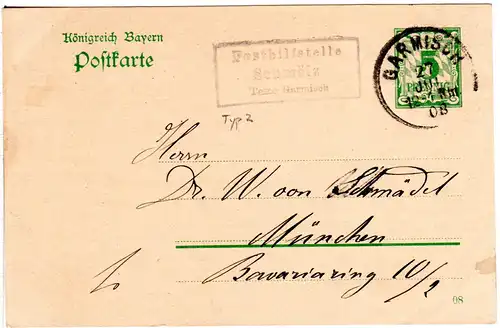 Königreich Bayern
Postkarte
Posthilfstelle
Schmölz
Taxe Garmisch
GARMISCH
27
JAN
08
5
PFENNIG
Typ 2
Herrn
Dr. W. von Schmädel
München
Bavariaring 10/2
08